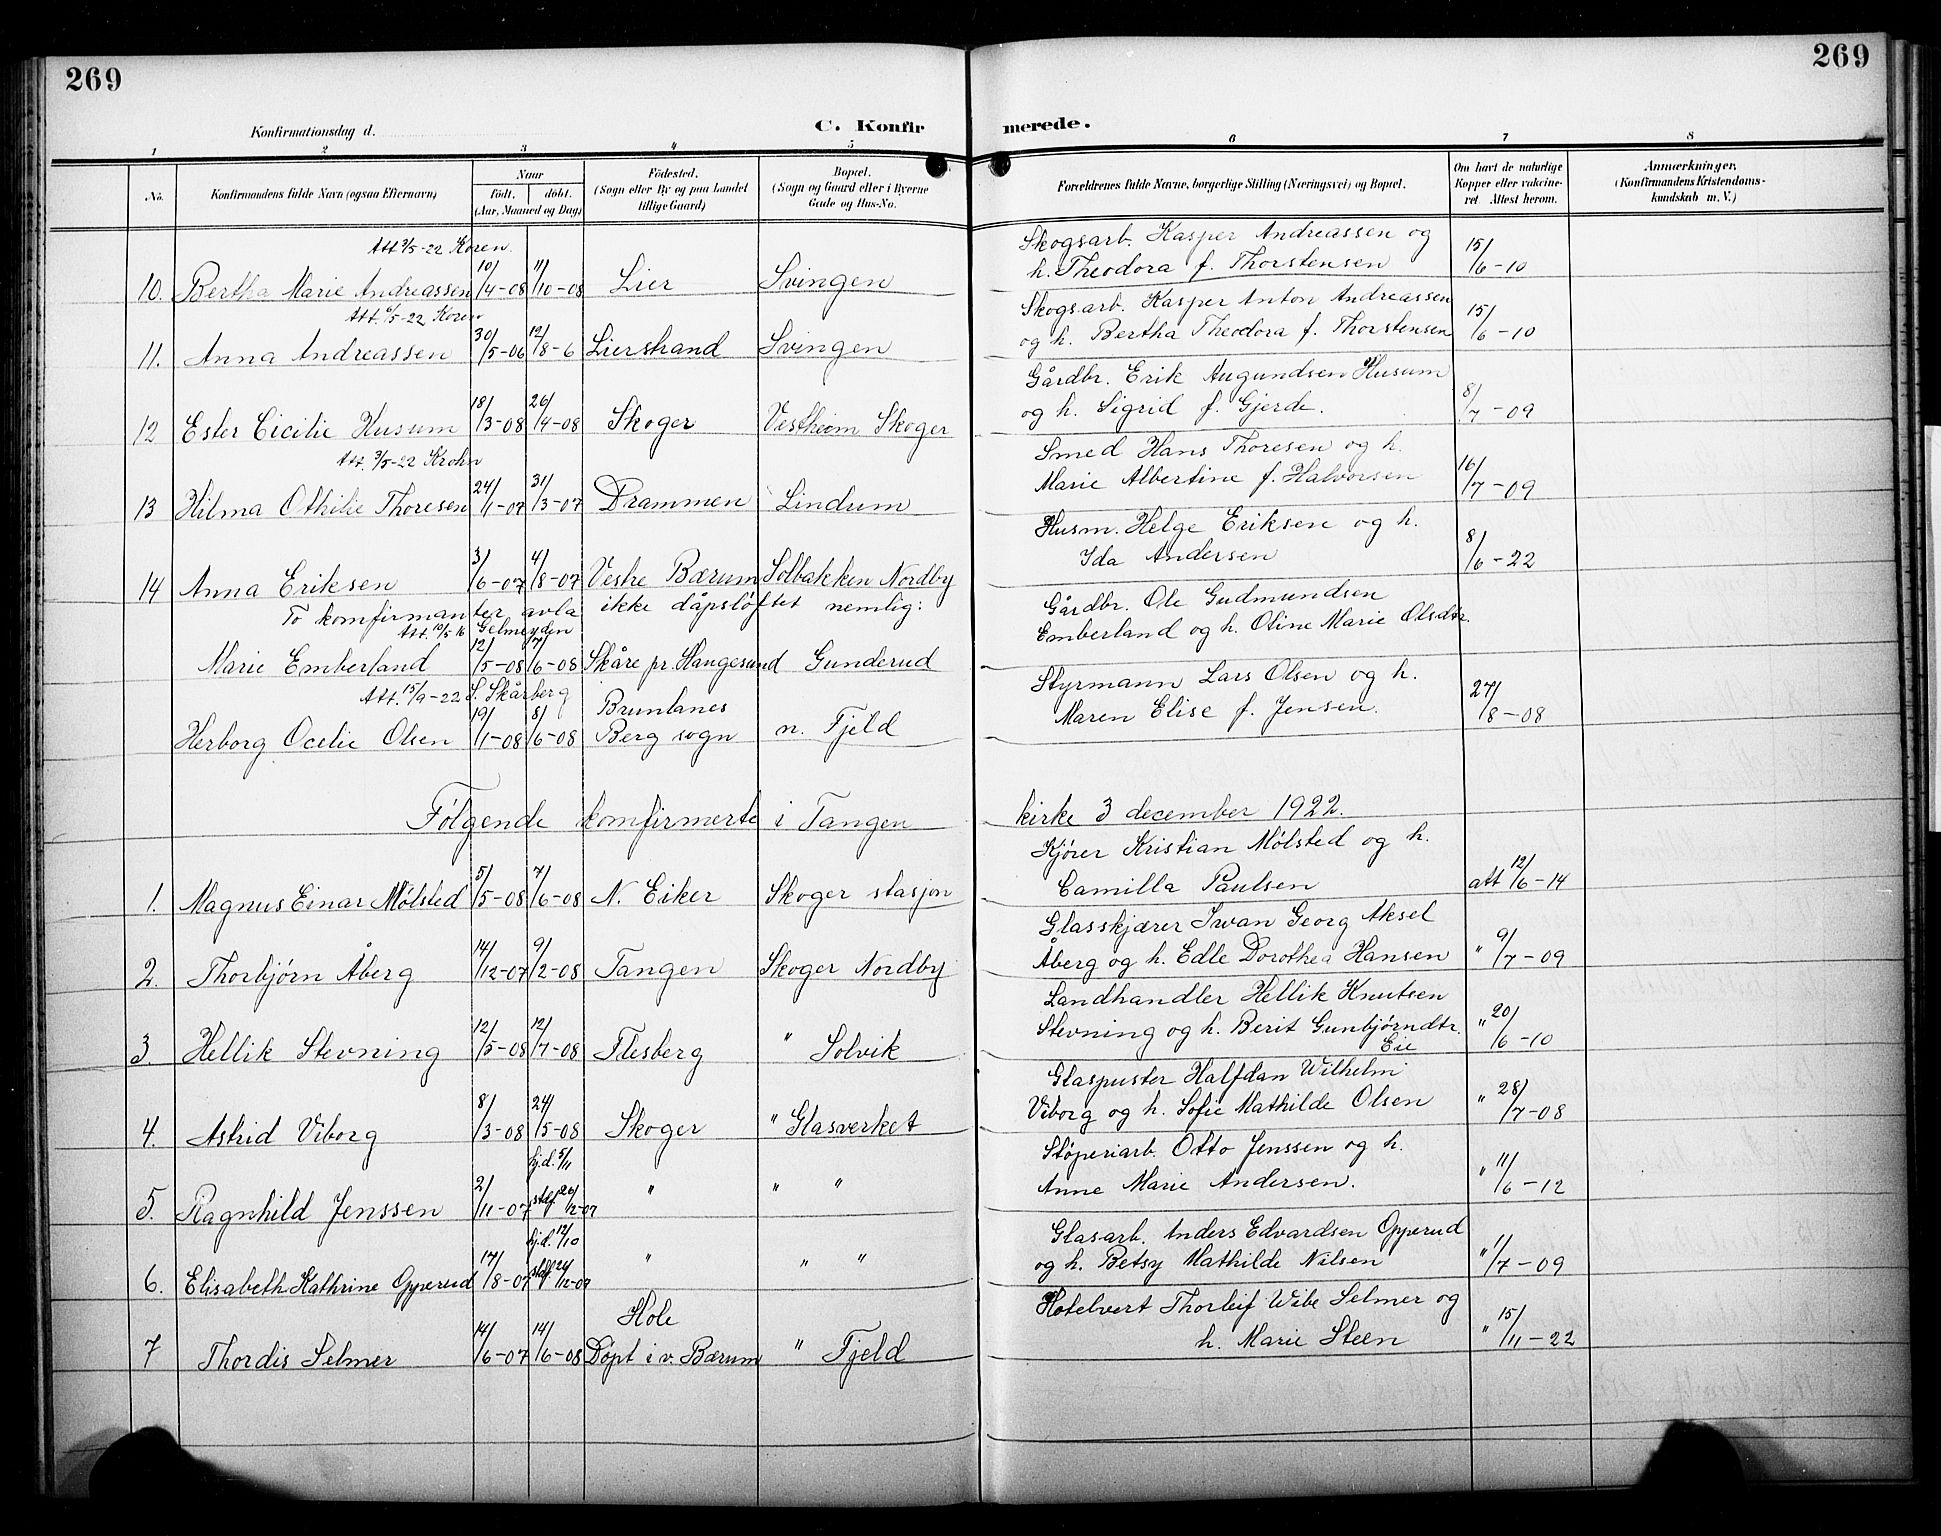 269
269
Konfirmationsdag d.
C. Konfirmerede.
1 2 3 4 5 6 7 8
No. Konfirmandens fulde Navn (ogsaa Efternavn) Naar født, døbt. (Aar, Maaned og Dag) Fødested. (Sogn eller By og paa Landet tillige Gaard) Bopæl. (Sogn og Gaard eller i Byerne Gade og Hus-No. Forældrenes fulde Navne, borgerlige Stilling (Næringsvei) og Bopæl. Om havt de naturlige Kopper eller vakcineret. Attest herom. Anmærkninger, (Konfirmandens Kristendomskundskab m. V.)
Att 3/5-22 Koren.
Skogsarb. Kasper Andreassen og
10. Bertha Marie Andreassen 10/4-08 11/10-08 Lier Svingen h. Theodora f. Thorstensen 15/6-10
Att. 6/5-22 Koren
Skogsarb. Kasper Anton Andreassen
11. Anna Andreassen 30/5-06 12/8-6 Lierstrand Svingen og h. Bertha Theodora f. Thorstensen 15/6-10
Gårdbr. Erik Augundsen Husum
12 Ester Cicilie Husum 18/3-08 26/4-08 Skoger Vestheim Skoger og h. Sigrid f. Gjerde. 8/7-09
Att. 3/5-22 Krohn
Smed Hans Thoresen og h.
13 Hilma Othilie Thoresen 24/1-07 31/3-07 Drammen Lindum Marie Albertine f. Halvorsen 16/7-09
Husm. Helge Eriksen og h.
14 Anna Eriksen 3/6-07 4/8-07 Vestre Bærum Solbakken Nordby Ida Andersen 8/6-22
To komfirmanter avla ikke dåpsløftet nemlig:
Att. 10/5 16
Gårdbr. Ole Gudmundsen
Marie Emberland 12/5-08 7/6-08 Skåre pr. Haugesund Gunderud Emberland og h. Oline Marie Olsdtr.
Att. 15/9-22 S. Skårberg
Styrmann Lars Olsen og h.
Brunlanes
Herborg Ocelie Olsen 19/1-08 8/6-08 Berg sogn n. Fjeld Maren Elise f. Jensen. 27/8-08
Følgende komfirmerte i Tangen kirke 3 december 1922.
Kjører Kristian Mølsted og h.
1. Magnus Einar Mølsted 5/5-08 7/6-08 N. Eiker Skoger stasjon Camilla Paulsen att 12/6-14
Glasskjærer Iwan Georg Aksel
2. Thorbjørn Åberg 14/12-07 9/2-08 Tangen Skoger Nordby Åberg og h. Edle Dorothea Hansen " 9/7-09
Landhandler Hellik Knutsen
3. Hellik Stevning 12/5-08 12/7-08 Flesberg " Solvik Stevning og h. Berit Gunbjørndtr. Eie " 20/6-10
Glaspuster Halfdan Wilhelm
4. Astrid Viborg 8/3-08 24/5-08 Skoger " Glasverket Viborg og h. Sofie Mathilde Olsen " 28/7-08
Støperiarb. Otto Jenssen og h.
5. Ragnhild Jenssen 2/11-07 hj.d. 5/11 stdf 26/12-07 " " " Anne Marie Andersen. " 11/6-12
Glasarb. Anders Edvardsen Opperud
6. Elisabeth Kathrine Opperud 17/8-07 hj.d. 12/10 " " " og h. Betsy Mathilde Nilsen " 1/7-09
Hotelvert Thorleif Wibe Selmer og
Hole
7 Thordis Selmer 14/6-07 14/6-08 Døpt i v. Bærum " Fjeld h. Marie Steen " 15/11-22